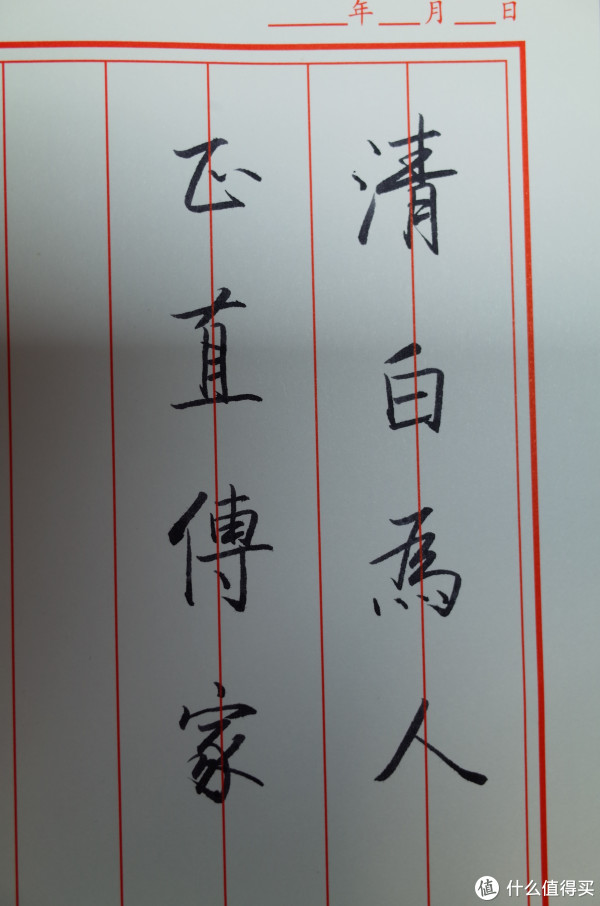 年 月 日
清白爲人
正直傳家
值 什么值得买